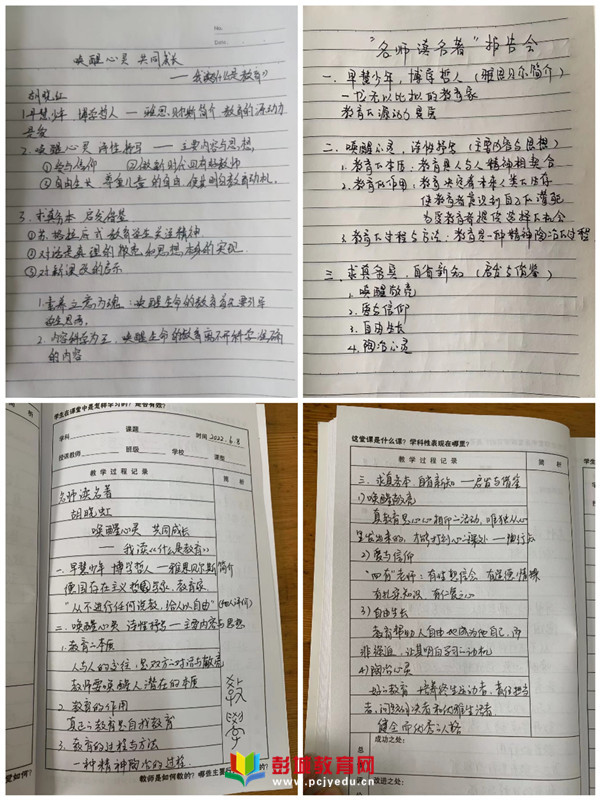 No.
Date.
唤醒心灵 共同成长
——我读《什么是教育》
胡晓虹
1.早慧少年 博学哲人 — 雅思贝尔斯简介 教育的源动力
是爱
2.唤醒心灵 诗性抒写 —— 主要内容与思想,
①爱与信仰 ②做新时代四有好教师
③自由生长 尊重儿童的自由
3.求真务本 启发借鉴
①苏格拉底式教育
②对话是真理的敞亮和思想本身的实现.
③对新课改的启示
1.素养立意为魂:唤醒生命的教育
2.内容科学为王.唤醒生命的教育离不开科学准确
的内容
“名师读名著”报告会
一.早慧少年,博学哲人(雅思贝尔斯简介)
一位无以比拟的教育家
教育的源动力是爱
二.唤醒心灵,诗性抒写(主要内容与思想)
1.教育的本质:教育是人与人精神相契合
2.教育的作用:教育决定着未来人类的生存
使教育者意识到自己的潜能
为受教育者提供选择的机会
3.教育的过程与方法:教育是一种精神陶冶的过程
三.求真务本,自省新知(启发与借鉴)
1.唤醒敞亮
2.爱与信仰
3.自由生长
4.陶冶心灵
学生在课堂中是怎样学习的?是否有效?
简 析
学科 课题 时间 2022.6.8
授课教师 班级 学校 课型
教学过程记录 简 析
名师读名著
胡晓虹
唤醒心灵 共同成长
——我读《什么是教育》
一.早慧少年 博学哲人——雅思贝尔斯简介
德国存在主义哲学家、教育家
“从不进行任何说教,给人以自由”(他人评价)
二.唤醒心灵 诗性抒写——主要内容与思想
1.教育的本质
人与人的交往,是双方的对话与敞亮
教师要唤醒人潜在的本质
2.教育的作用
真正的教育是自我教育
3.教育的过程与方法
一种精神陶冶的过程
教师是如何教的?哪些主要行
堂如何?
这堂课是什么课?学科性表现在哪里?
教学过程记录 简 析
三.求真务本,自省新知——启发与借鉴
1)唤醒敞亮
真教育是心心相印的活动,唯独从心
里发出来的,才能打到心的深处——陶行知
2)爱与信仰
“四有”老师:有理想信念 有道德情操
有扎实知识 有仁爱之心
3)自由生长
教育帮助人自由地成为他自己,而
非强迫,让其明白学习的动机
4)陶冶心灵
好的教育 培养终生运动者,责任担当
者,问题解决者和优雅生活者
健全而优秀的人格
总 成功之处:
彭城教育网
www.pcjyedu.cn